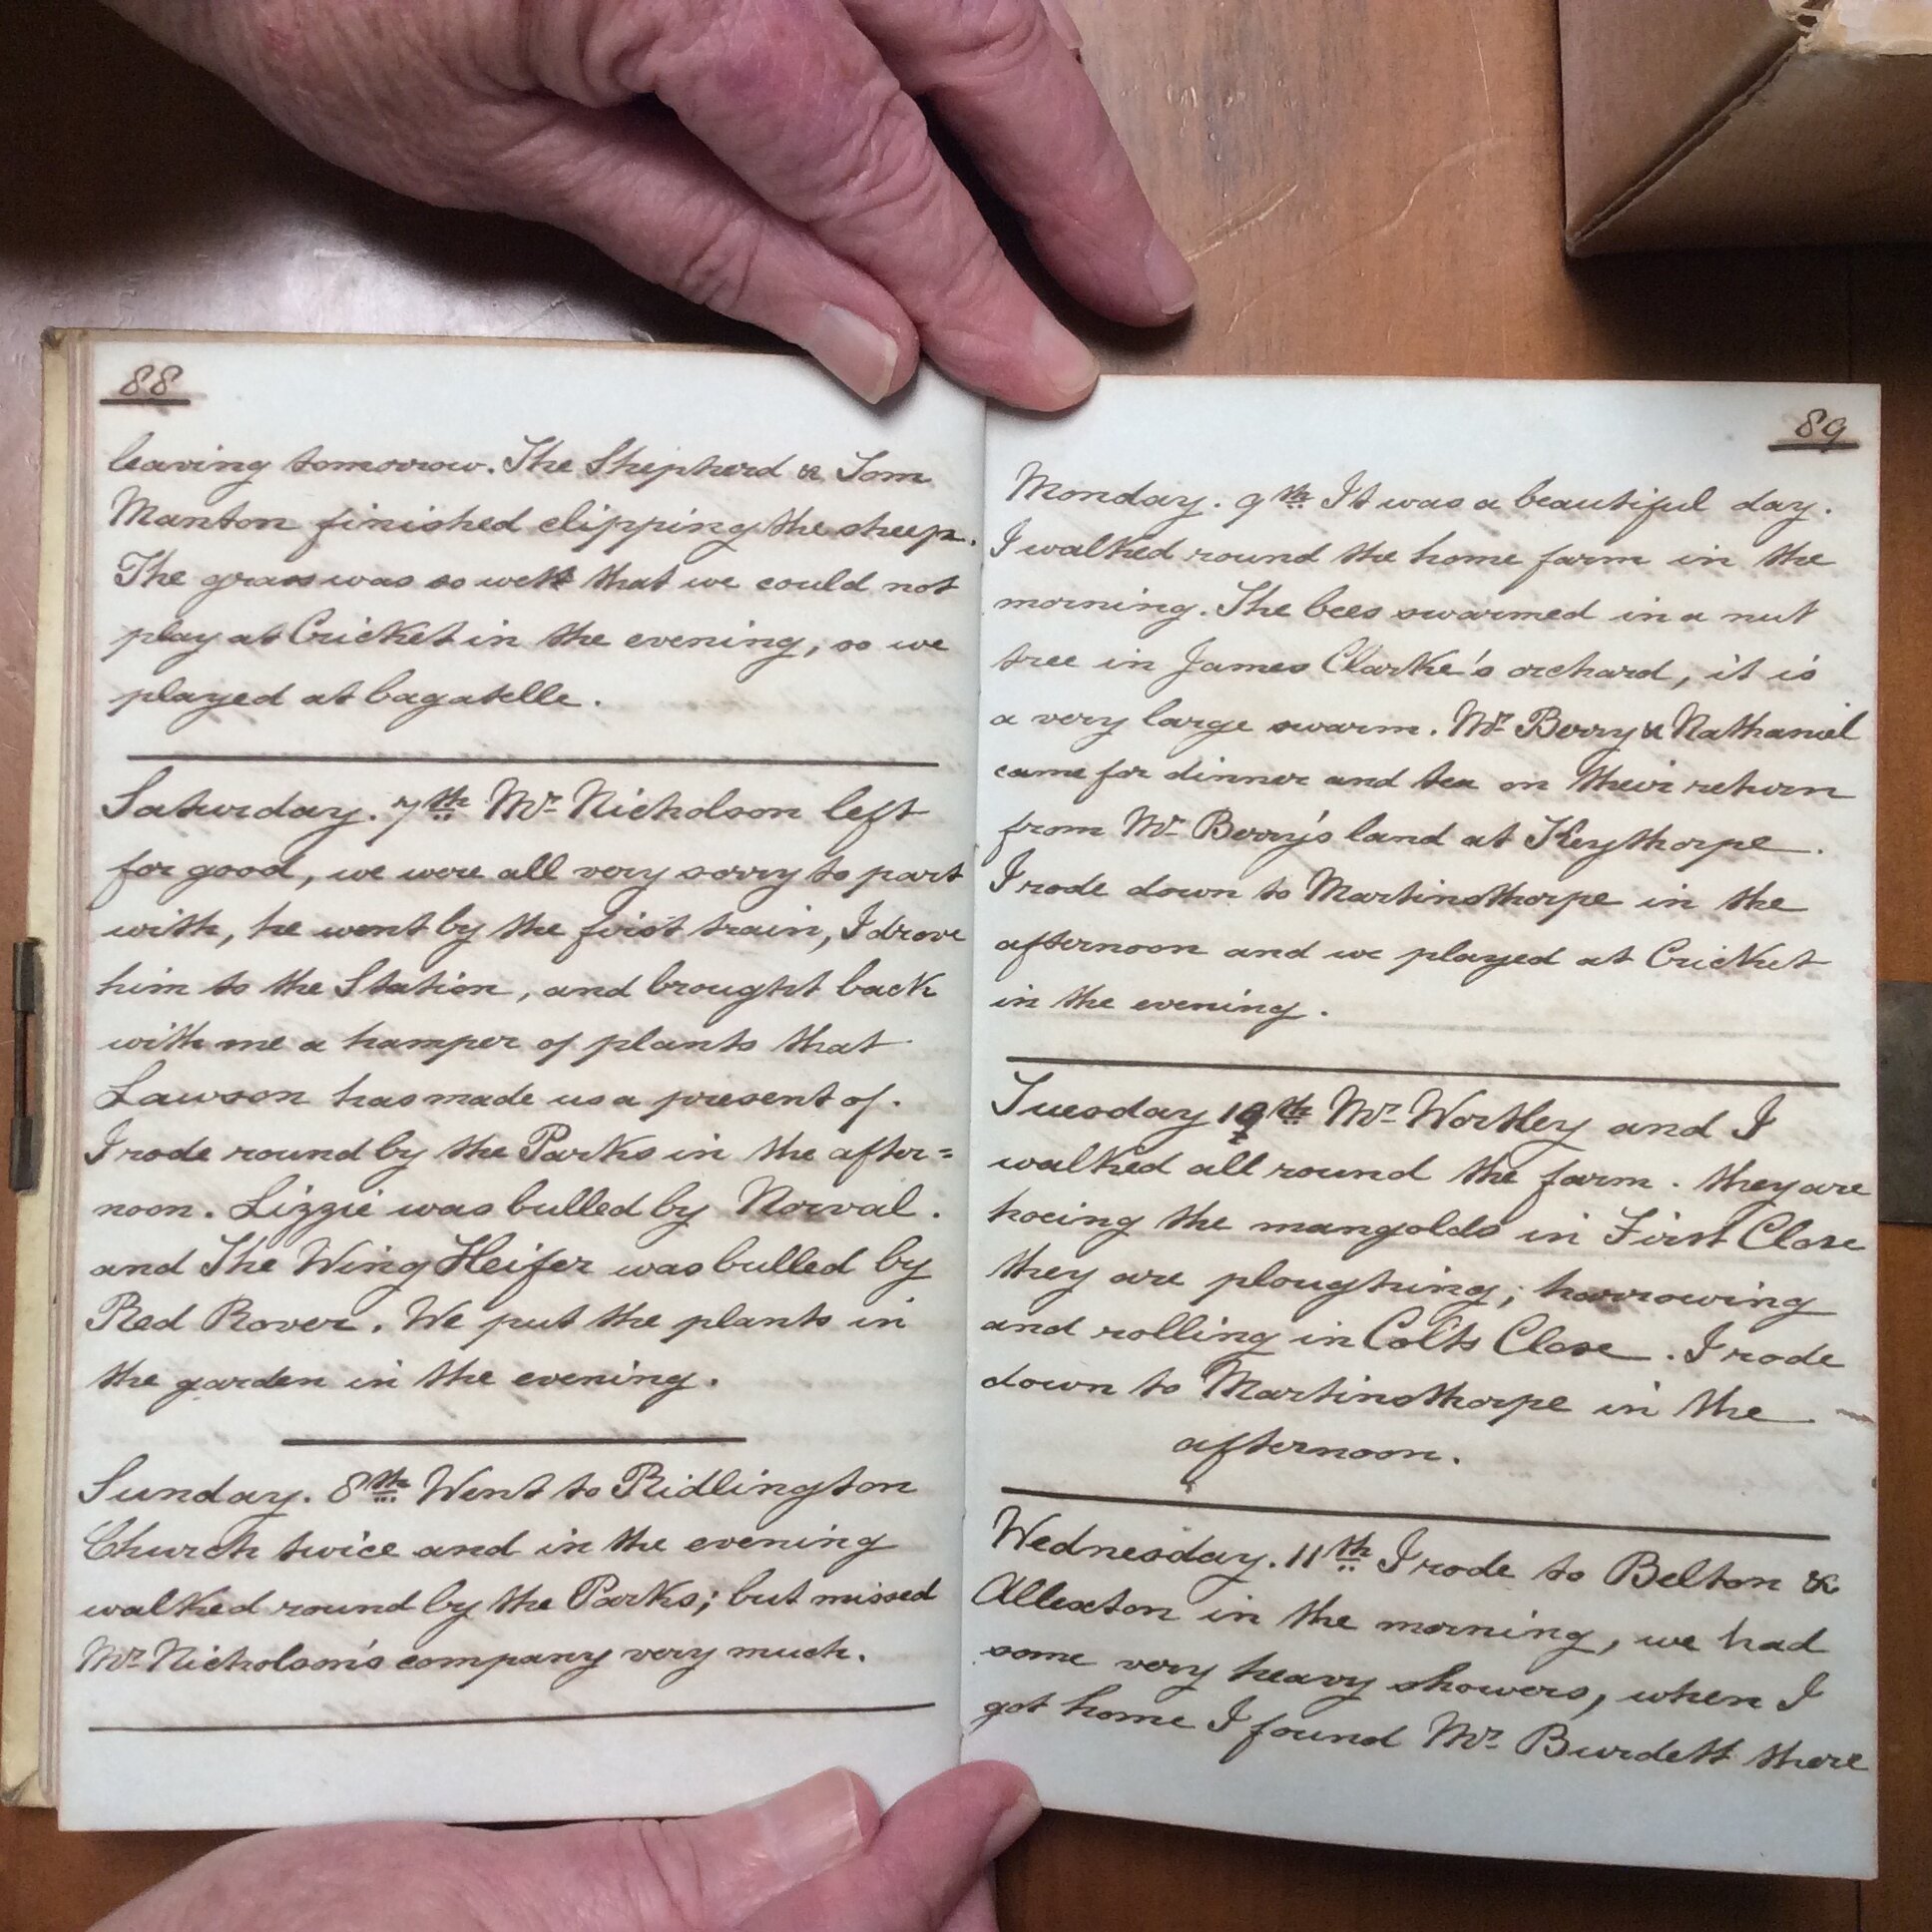 88
leaving tomorrow. The Shepherd & Tom
Manton finished clipping the sheep.
The grass was so wett that we could not
play at Cricket in the evening, so we
played at bagatelle.
Saturday. 7th Mr Nicholson left
for good, we were all very sorry to part
with, he went by the first train, I drove
him to the Station, and brought back
with me a hamper of plants that
Lawson has made us a present of.
I rode round by the Parks in the after=
noon. Lizzie was bulled by Norval.
and The Wing Heifer was bulled by
Red Rover. We put the plants in
the garden in the evening.
Sunday. 8th Went to Ridlington
Church twice and in the evening
walked round by the Parks; but missed
Mr Nicholson's company very much.
89
Monday. 9th It was a beautiful day.
I walked round the home farm in the
morning. The bees swarmed in a nut
tree in James Clarke's orchard, it is
a very large swarm. Mr Berry & Nathaniel
came for dinner and tea on their return
from Mr Berry's land at Keythorpe.
I rode down to Martinsthorpe in the
afternoon and we played at Cricket
in the evening.
Tuesday 10th Mr Wortley and I
walked all round the farm. they are
hoeing the mangolds in First Close
they are ploughing; harrowing
and rolling in Colts Close. I rode
down to Martinsthorpe in the
afternoon.
Wednesday. 11th I rode to Belton &
Allexton in the morning, we had
some very heavy showers, when I
got home I found Mr Burdett there